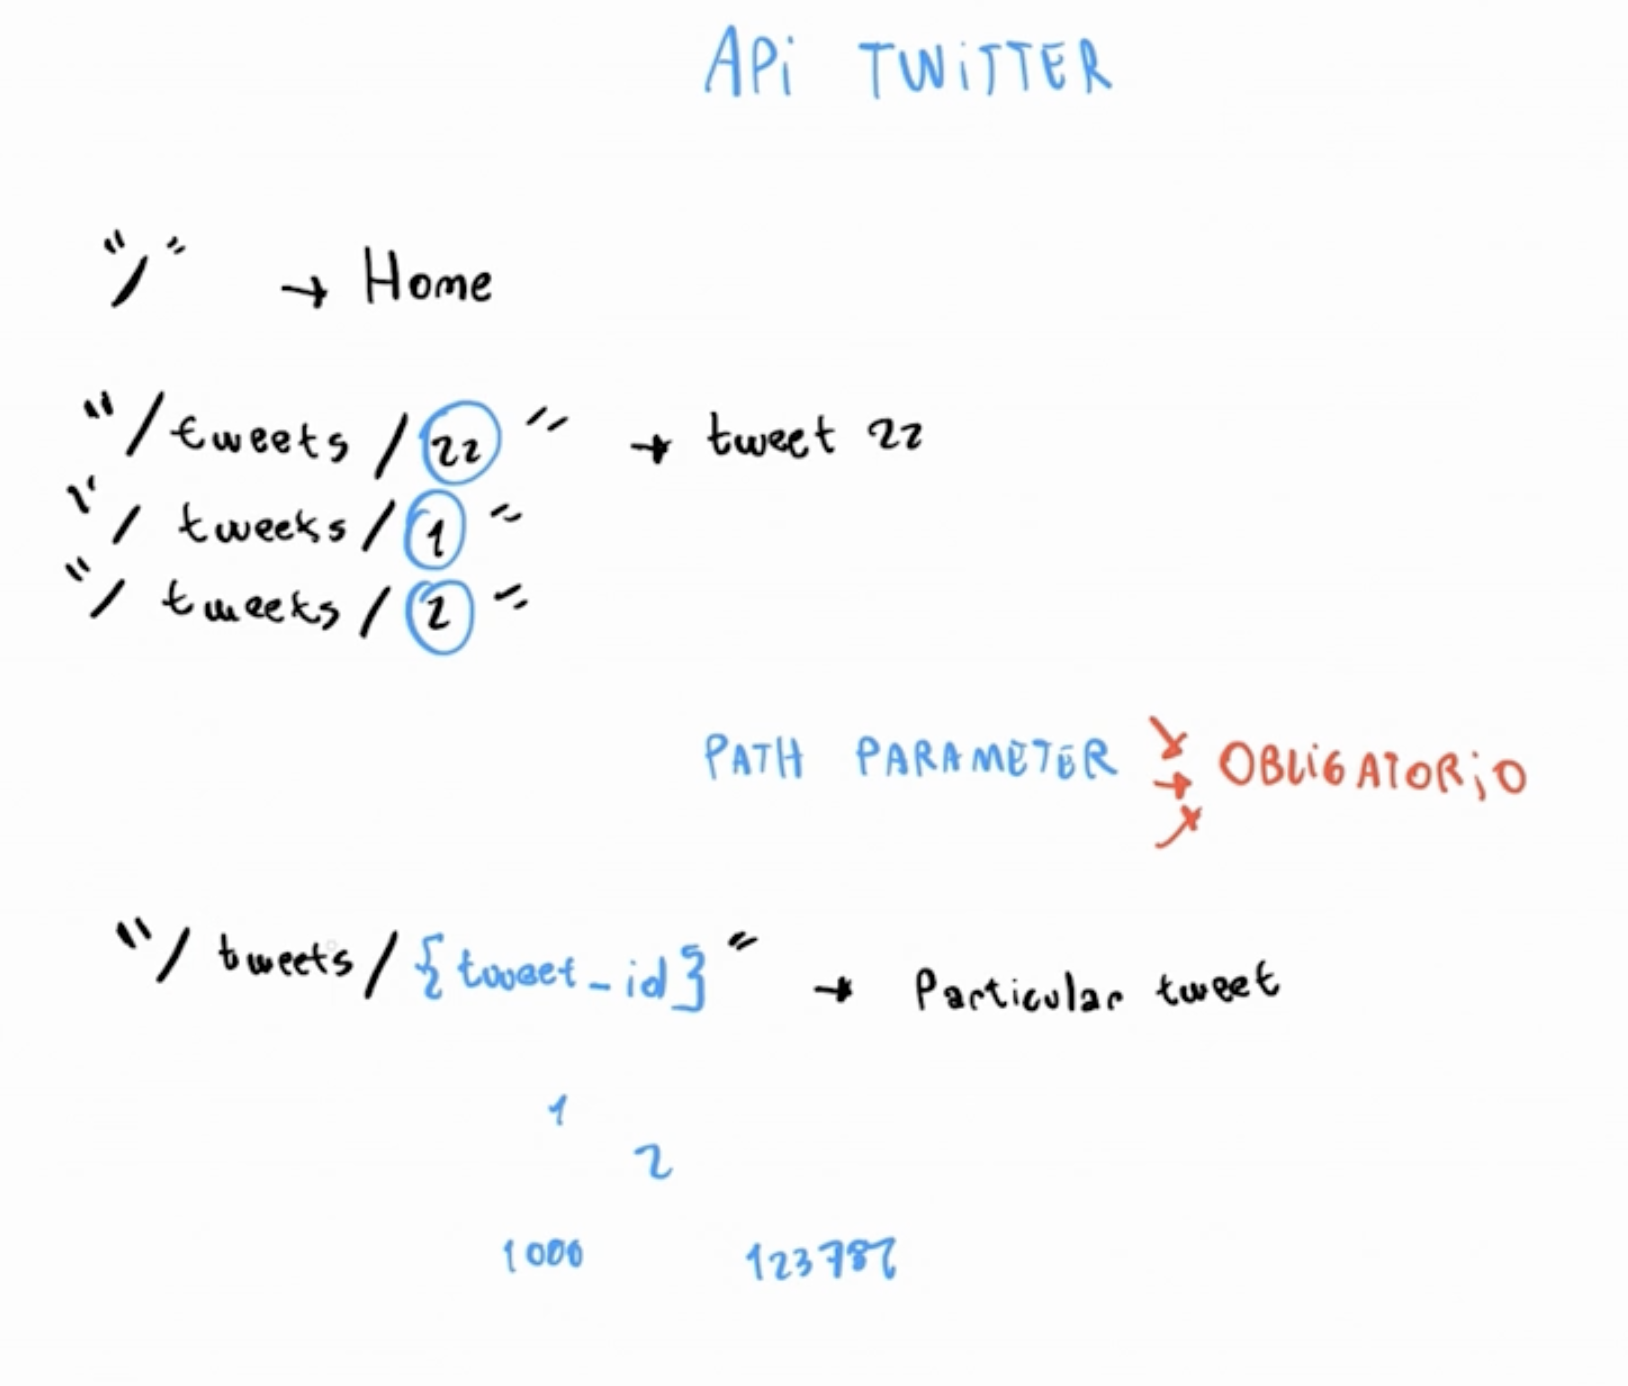 APi TWiTTER
"/" → Home
"/tweets/22" → tweet 22
"/ tweets/1"
"/ tweets/2"
PATH PARAMETER → OBLiGATORiO
"/ tweets/{tweet_id}" → Particular tweet
1
2
1000